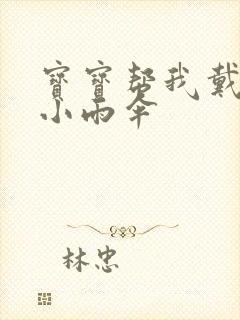 寶寶帮我戴
小雨伞
林忠